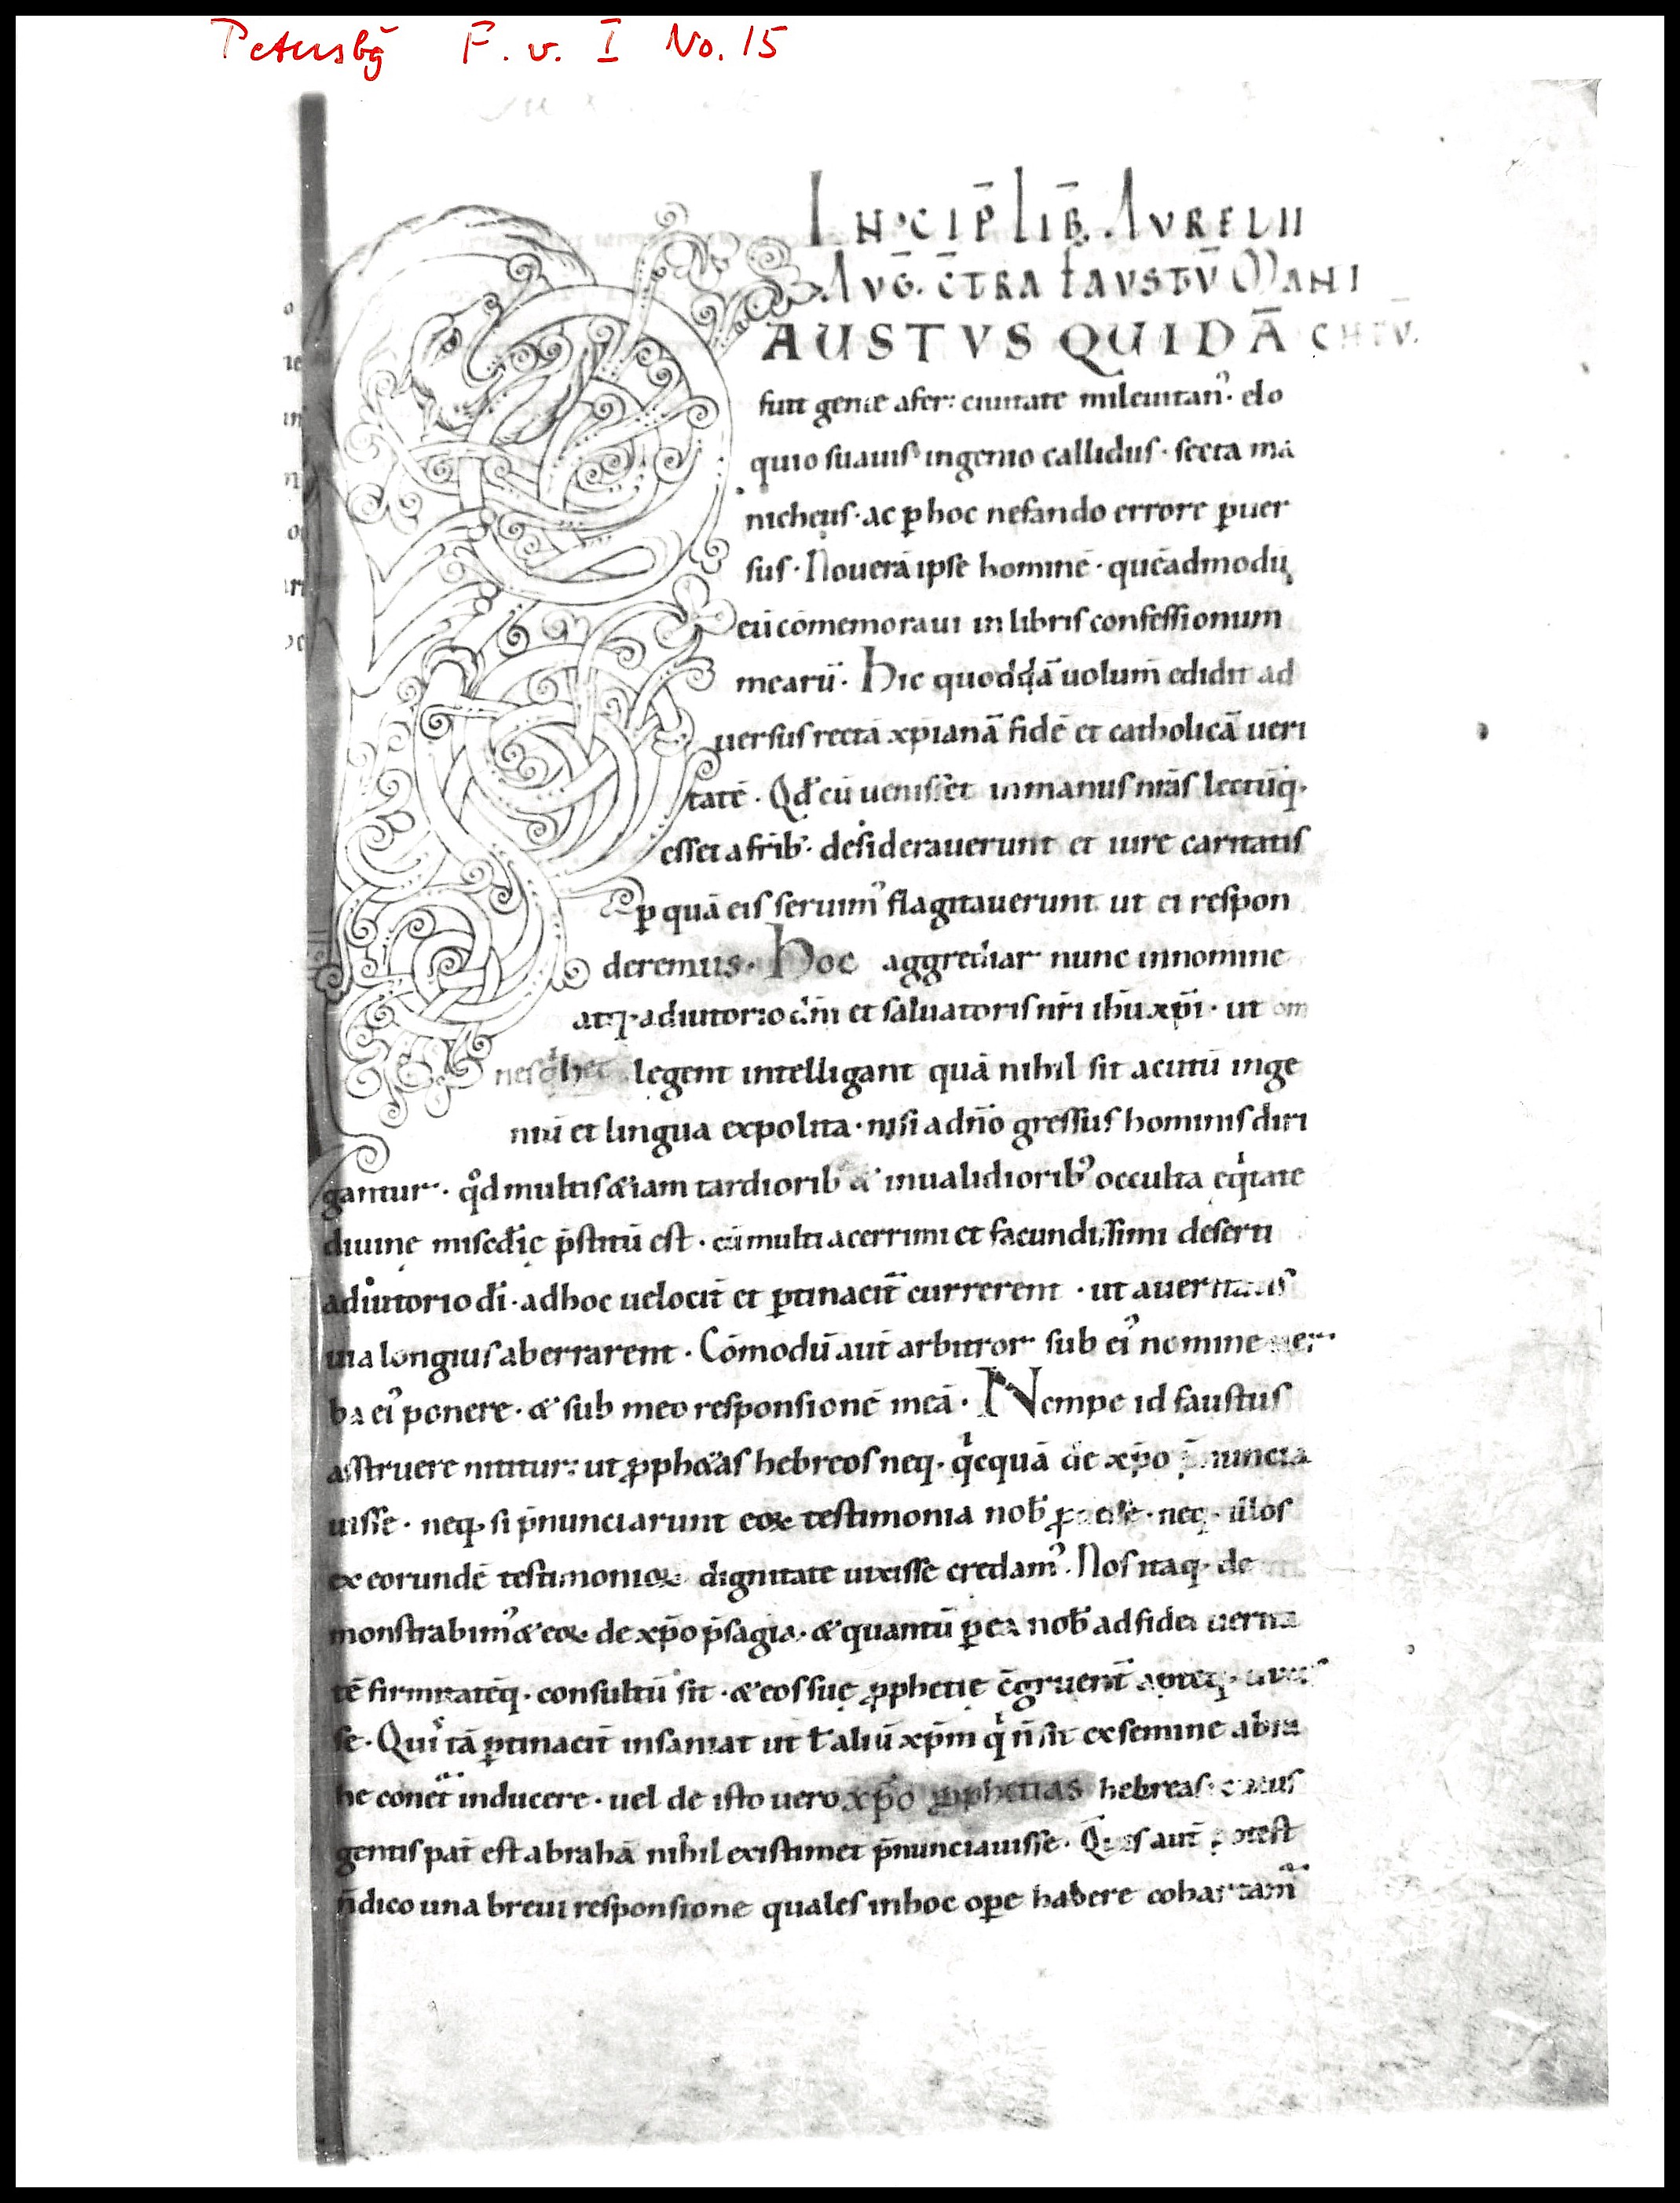 Petersbg F. v. I No. 15
INCIP̄ LIB̄. AVRELII
AVḠ. C̄TRA FAVSTV̄ MANI
AUSTVS QUIDĀ CHEV̄.
fuit gente afer: ciuitate mileuitan᾽. elo
quio suauis ingenio callidus. secta ma
nicheus. ac ꝑ hoc nefando errore ꝑuer
sus. Nouerā ipse hominē. quēadmodū
eū cōmemoraui in libris confessionum
mearū. Hic quoddā uolum̄ edidit ad
uersus rectā xp̄ianā fidē et catholicā ueri
tatē. Qd̄ cū uenisset in manus nr̄as lectūq;
esset a fr̄ib᾽. desiderauerunt et iure caritatis
ꝑ quā eis seruim᾽ flagitauerunt ut ei respon
deremus. Hoc aggrediar nunc in nomine
atq; adiutorio dn̄i et saluatoris nr̄i ih̄u xp̄i. ut om
nes q̇ hec legent intelligant quā nihil sit acutū inge
niū et lingua expolita. nisi a dn̄o gressus hominis diri
gantur. qd̊ multis &iam tardiorib᾽ & inualidiorib᾽ occulta eq̇tate
diuine misc̄die p̄stitū est. cū multi acerrimi et facundissimi deserti
adiutorio dī. ad hoc uelocit̄ et ꝑtinacit̄ currerent. ut a ueritatis
uia longius aberrarent. Cōmodū aut̄ arbitror sub ei᾽ nomine uer
ba ei᾽ ponere. & sub meo responsionē meā. Nempe id faustus
astruere nititur: ut ꝓph&as hebreos neq; q̇cquā de xp̄o p̄nuncia
uisse. neq; si p̄nunciarunt eoꝝ testimonia nob̄ ꝓdesse. neq; illos
ex eorundē testimonioꝝ dignitate uixisse credam᾽. Nos itaq; de
monstrabim᾽ & eoꝝ de xp̄o p̄sagia. & quantū ꝑ ea nob̄ ad fidei uerita
tē firmitatēq; consultū sit. & eos sue ꝓphetie c̄gruent̄ apteq; uixis
se. Quis tā ꝑtinacit̄ insaniat ut ł aliū xp̄m q̇ n̄ sit ex semine abra
he conet᾽ inducere. uel de isto uero xp̄o ꝓphetias hebreas cuius
gentis pat̄ est abrahā nihil existimet p̄nunciauisse. Quis aut̄ potest
n̄ dico una breui responsione quales in hoc oꝑe habere cohartam᾽